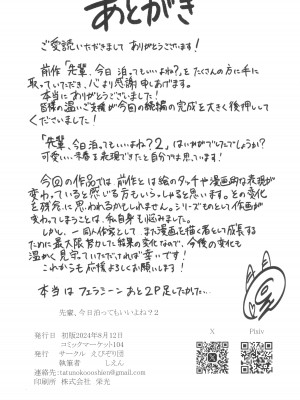 あとがき
ご愛読いただきまして ありがとうございます！
前作「先輩、今日 泊ってもいいよね？」をたくさんの方に手に
取っていただき、心より感謝申しあげます。
本当にありがとうございました！
皆様の温かいご支援が今回の続編の完成を大きく後押しして
くださいました！
「先輩、今日泊ってもいいよね？2」はいかがでしたでしょうか？
可愛い を表現できたと自分では思っています！
今回の作品では 前作とは絵のタッチや漫画的な表現が
変わっていると感じる方もいらっしゃると思います。その変化
を残念に思われるかもしれません。シリーズものとして作画が
変わってしまうことは、私自身も悩みました。
しかし、一同人作家として、また漫画を描く者として成長する
ために最大限努力した結果の変化なので、今後の変化も
温かく見守っていただければ幸いです！
これからも応援よろしくお願いします！
本当は フェラシーン あと2P足したかった…
先輩、今日泊ってもいいよね？2
発行日 初版2024年8月12日
コミックマーケット104
発行 サークル えびぞり団
執筆者 しえん
連絡先:tarunokoooshien@gmail.com
印刷所 株式会社 栄光
X
Pixiv